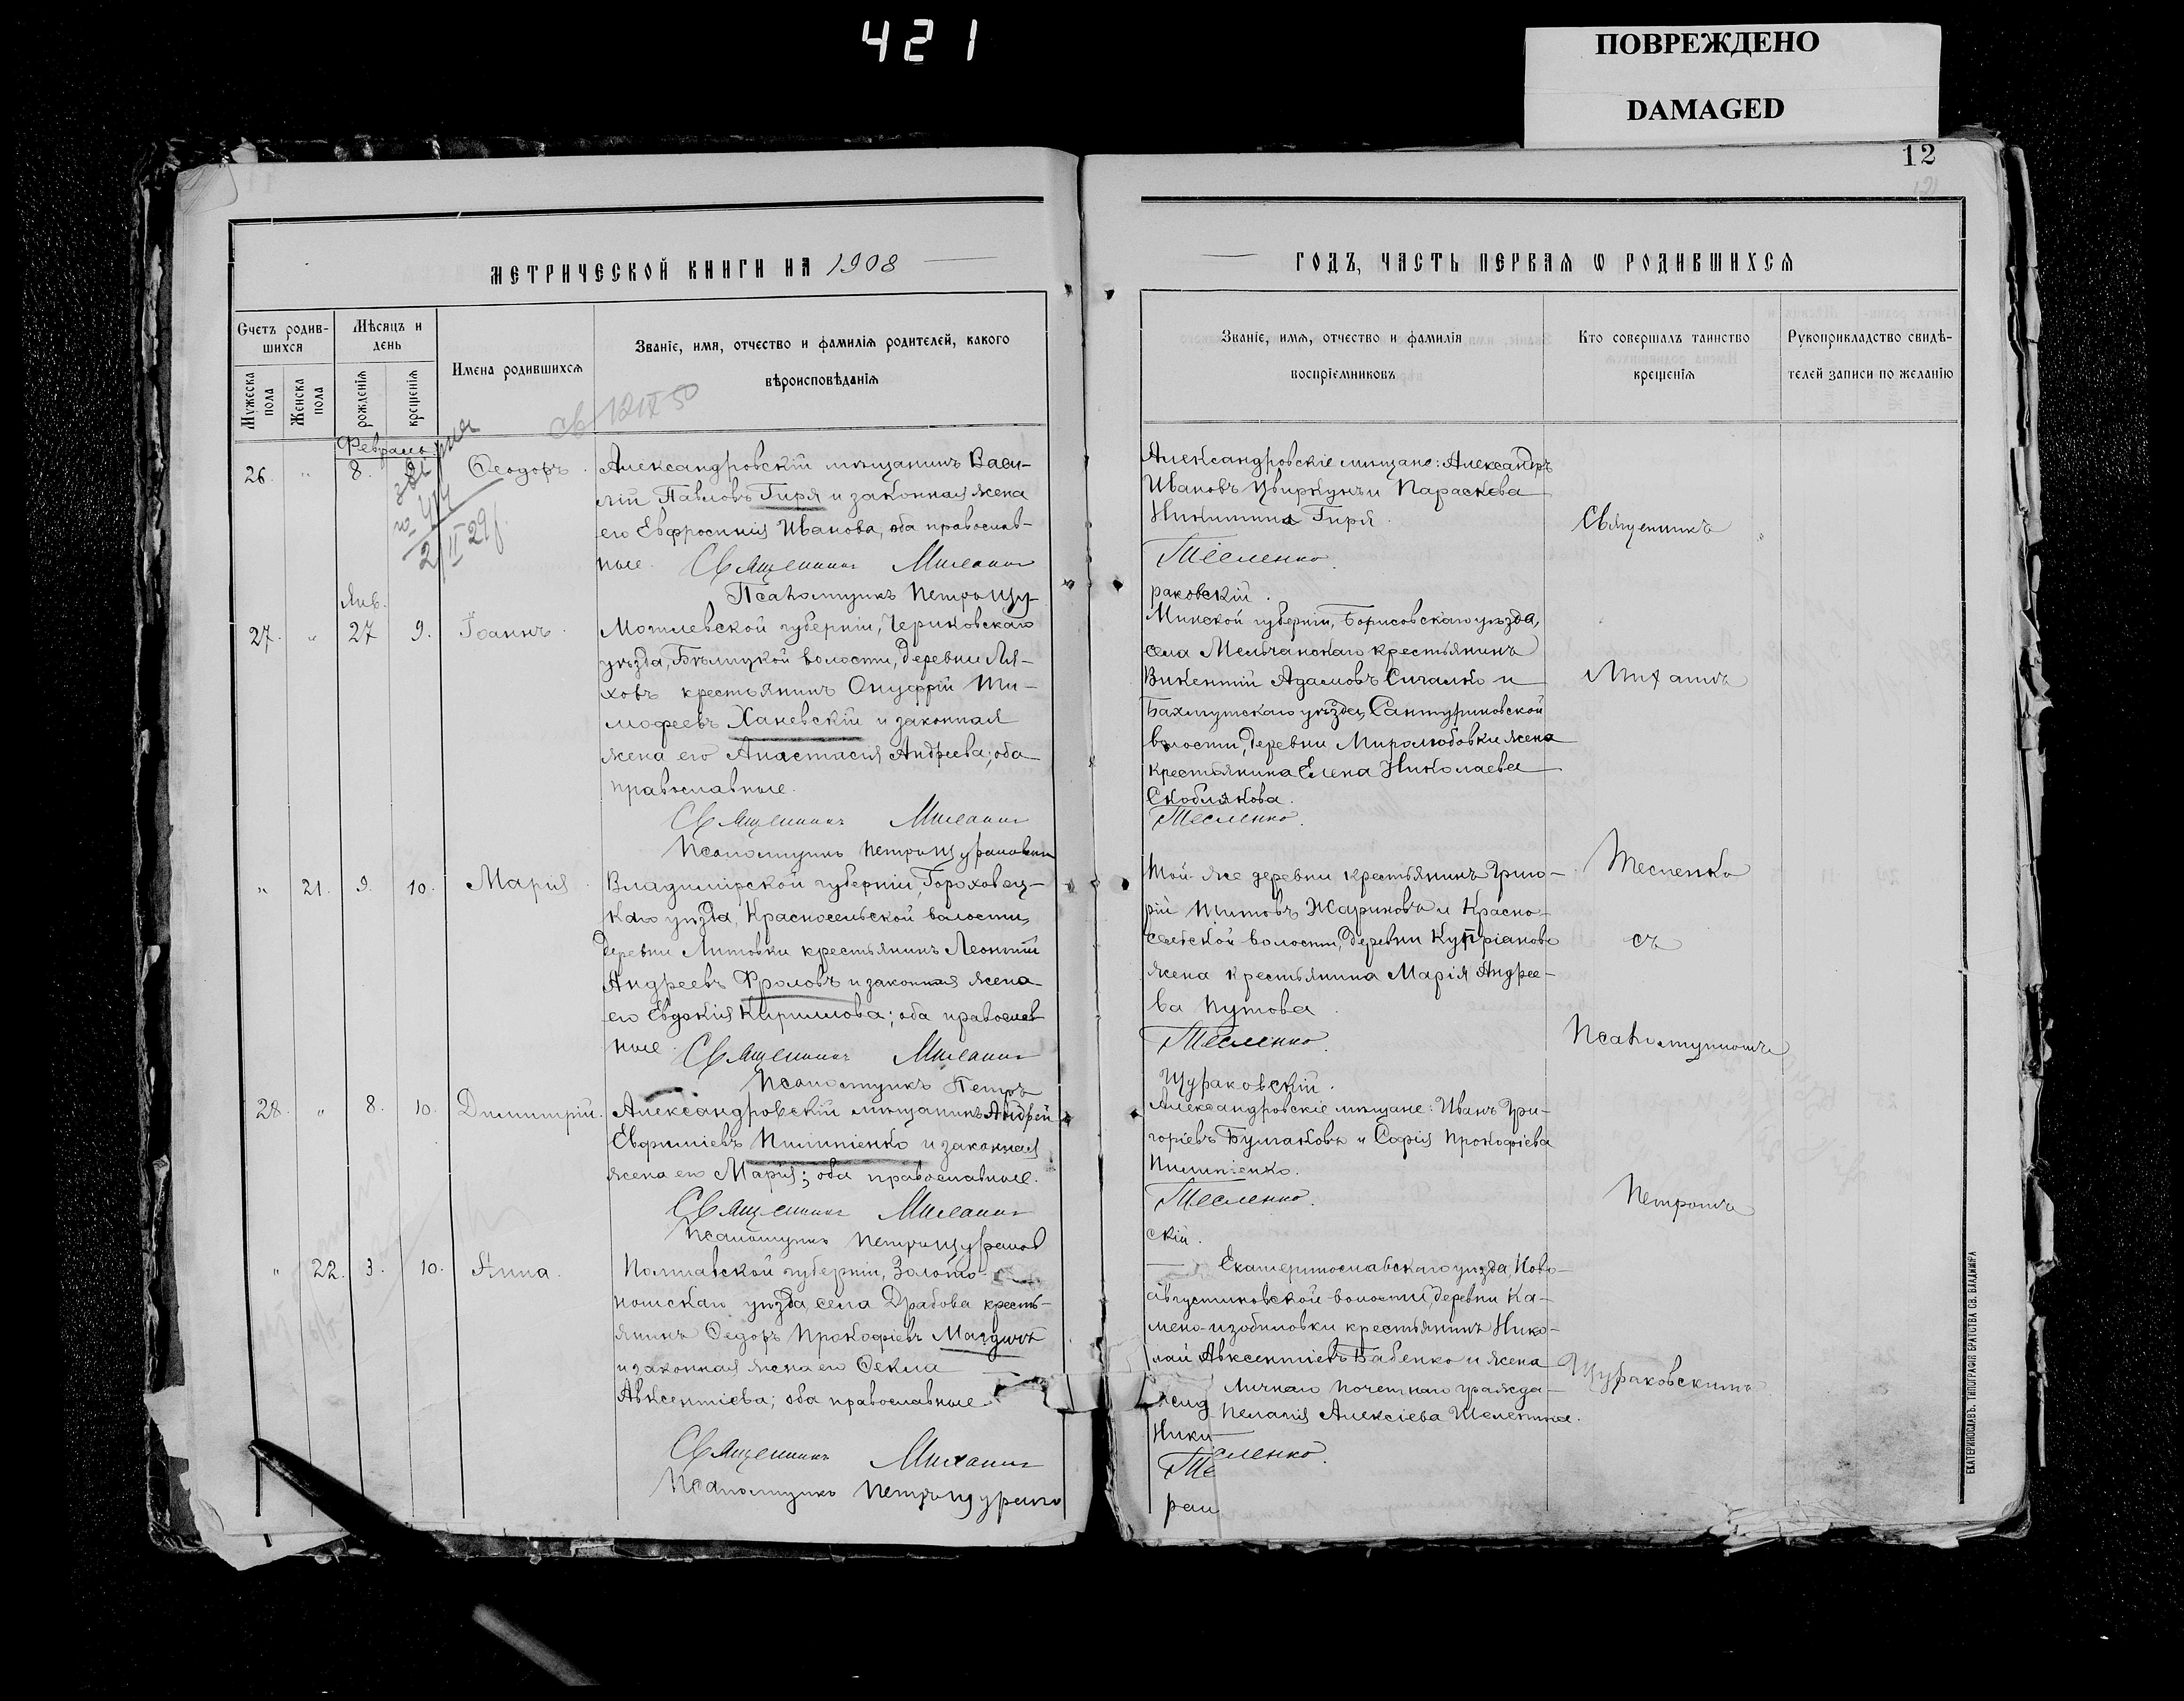 421
ПОВРЕЖДЕНО
DAMAGED
12
МЕТРИЧЕСКОЙ КНИГИ НА 1908
Счетъ родив-
шихся
Мѣсяцъ и
день
Мужеска
пола
Женска
пола
рожденія
крещенія
Имена родившихся
Званіе, имя, отчество и фамилія родителей, какого
вѣроисповѣданія
Февраль
26. " 8. Ѳеодоръ.
Александровскій мѣщанинъ Васи-
лій Павловъ Гиря и законная жена
его Евфросинія Иванова, оба православ-
ные. Священникъ Михаилъ
Псаломщикъ Петръ Щу-
Янв.
27. " 27 9. Іоаннъ.
Могилевской губерніи, Чериковскаго
уѣзда, Бѣлицкой волости, деревни Ля-
ховъ крестьянинъ Онуфрій Ти-
мофеевъ Ханевскій и законная
жена его Анастасія Андреева; оба
православные.
Священникъ Михаилъ
Псаломщикъ Петръ Щураковскій
" 21. 9. 10. Марія.
Владимірской губерніи, Гороховец-
каго уѣзда, Красносельской волости,
деревни Литовки крестьянинъ Леонтій
Андреевъ Фроловъ и законная жена
его Евдокія Кириллова; оба православ
ные. Священникъ Михаилъ
Псаломщикъ Петръ
28. " 8. 10. Димитрій.
Александровскій мѣщанинъ Андрей
Евфиміевъ Пилипенко и законная
жена его Марія; оба православные.
Священникъ Михаилъ
Псаломщикъ Петръ Щураков
" 22. 3. 10. Анна.
Полтавской губерніи, Золото-
ношскаго уѣзда, села Драбова кресть-
янинъ Ѳедоръ Прокофіевъ
и законная жена его Ѳекла
Авксентіева; оба православные.
Священникъ Михаилъ
Псаломщикъ Петръ Щурако
ГОДЪ, ЧАСТЬ ПЕРВАЯ Ѡ РОДИВШИХСЯ
Званіе, имя, отчество и фамилія
воспріемниковъ
Кто совершалъ таинство
крещенія
Рукоприкладство свидѣ-
телей записи по желанію
Александровскіе мѣщане: Александръ
Ивановъ Цвиркунъ и Параскева
Никитина Гиря.
Тесленко.
раковскій.
Минской губерніи, Борисовскаго уѣзда,
села Мельчанскаго крестьянинъ
Викентій Адамовъ Сигалко и
Бахмутскаго уѣзда, Сантуриновской
волости, деревни Миролюбовки жена
крестьянина Елена Николаева
Скоблякова.
Тесленко.
Той-же деревни крестьянинъ Григо-
рій Титовъ Жариковъ и Красно-
сельской волости, деревни Купріяново
жена крестьянина Марія Андрее-
ва Путова.
Тесленко.
Щураковскій.
Александровскіе мѣщане: Иванъ Гри-
горіевъ Булгаковъ и Софія Прокофіева
Пилипенко.
Тесленко.
скій.
Екатеринославскаго уѣзда, Ново-
августиновской волости, деревни Ка-
мено-изобиловки крестьянинъ Нико-
лай Авксентіевъ Бабенко и жена
личнаго почетнаго гражда-
Пелагія Алексіева
Ники
Тесленко.
рак
Священникъ
Михаилъ
Тесленко
съ
Псаломщикомъ
Петромъ
Щураковскимъ
ЕКАТЕРИНОСЛАВЪ. ТИПОГРАФІЯ БРАТСТВА СВ. ВЛАДИМІРА